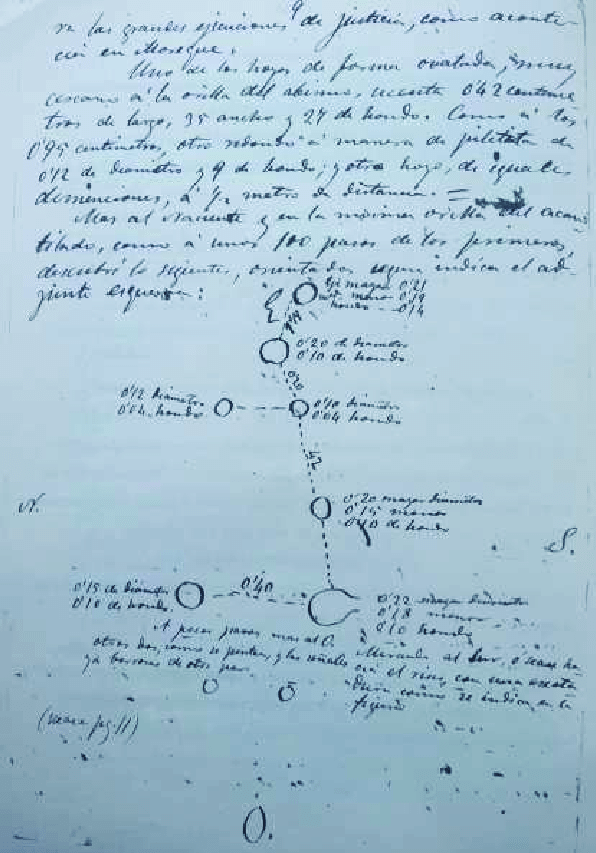 9
ra las grandes ejecuciones de justicia, como aconte-
ció en
Uno de los hoyos de forma ovalada, muy
cercano á la orilla del abismo, cuenta 0'42 centíme
tros de largo, 35 ancho y 27 de hondo. Como á los
0'95 centímetros, otro redondo á manera de piletita de
0'12 de diametro y 9 de hondo; y otro hoyo, de iguales
dimenciones, á ½ metro de distancia. =
Mas al naciente y en la misma orilla del acan
tilado, como á unos 100 pasos de los primeros,
descubrí lo sigiente, orientados segun indica el ad-
junte esquema:
E
mayor 0'21
menor 0'19
hondo 0'14
0'20 de diametro
0'10 de hondo
0'12 diametro
0'04 hondo
0'10 diametro
0'04 hondo
N.
0,20 mayor diametro
0'15 menor
0'10 de hondo
S.
0'15 de diametro
0'10 de hondo
0'40
0'22 mayor diametro
0'18 menor
0'10 hondo
A pocos pasos mas al O.
otros dos, como se pintan, y las señales
ya borrosas de otro par.
al Sur, ó sea
el rio, con una
como se indica en la
figura
(vease pg. 11)
O.